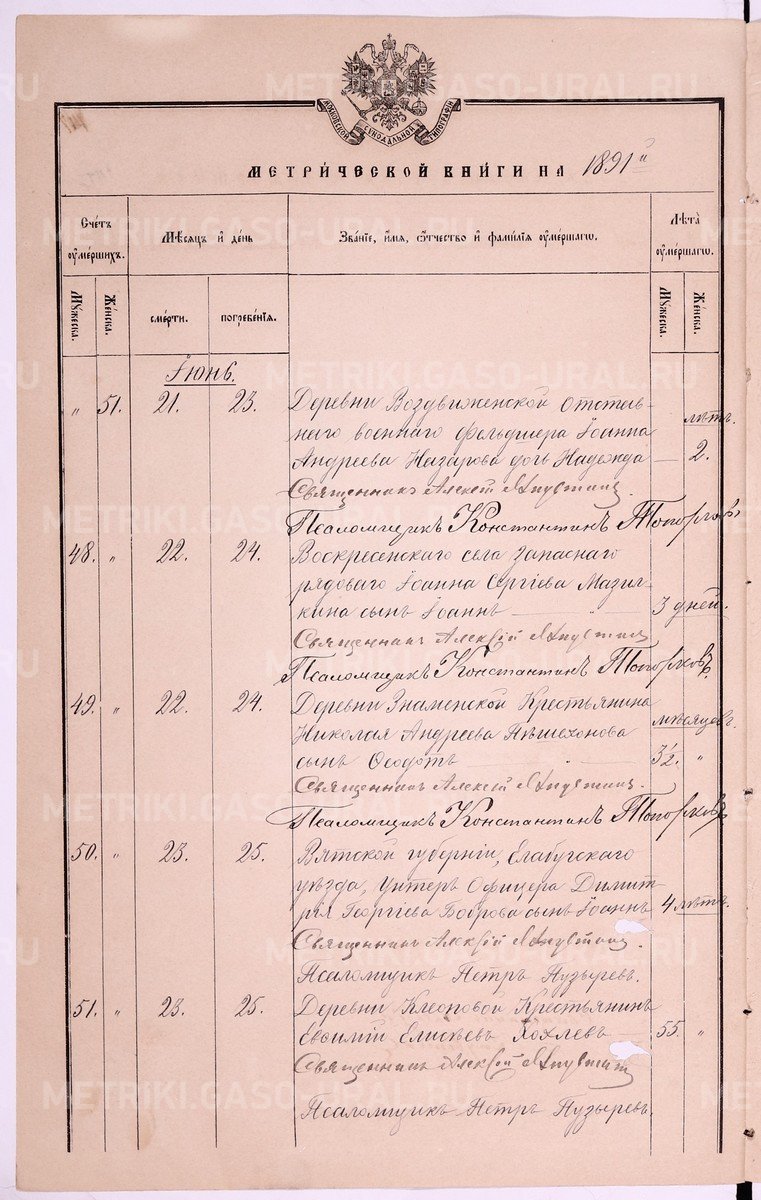 МОСКОВСКОЙ СѴНОДАЛЬНОЙ ТИПОГРАФІИ
МЕТРИ́ЧЕСКОЙ КНИ́ГИ НА 1891 й
Счетъ оумершихъ.
Мѣсяцъ и день
Званіе, имя, отчество и фамилія оумершагѡ.
Лѣта оумершагѡ.
Мужеска.
Женска.
смерти.
погребенія.
Мужеска.
Женска.
Іюнь.
„ 51. 21. 23. Деревни Воздвиженской Отстав-
лѣтъ.
наго военнаго фельдшера Іоанна
Андреева Назарова дочь Надежда — 2.
Священникъ Алексій
Псаломщикъ Константинъ Топорковъ
48. „ 22. 24. Воскресенскаго села запаснаго
рядоваго Іоанна Сергіева Мазил-
кина сынъ Іоаннъ — „ — 3 дней.
Священникъ Алексій
Псаломщикъ Константинъ Топорковъ.
49. „ 22. 24. Деревни Знаменской Крестьянина
мѣсяцевъ.
Николая Андреева Пѣшехонова
сынъ Ѳеодотъ — „ — 3½. „
Священникъ Алексій
Псаломщикъ Константинъ Топорковъ
50. „ 23. 25. Вятской губерніи, Елабугскаго
уѣзда, Унтеръ Офицера Димит-
рія Георгіева Боброва сынъ Іоаннъ 4 лѣтъ.
Священникъ Алексій
Псаломщикъ Петръ Пузыревъ.
51. „ 23. 25. Деревни Клеоповой Крестьянинъ
Евѳимій Елисѣевъ Хохлевъ — 55. „
Священникъ Алексій
Псаломщикъ Петръ Пузыревъ
METRIKI.GASO-URAL.RU